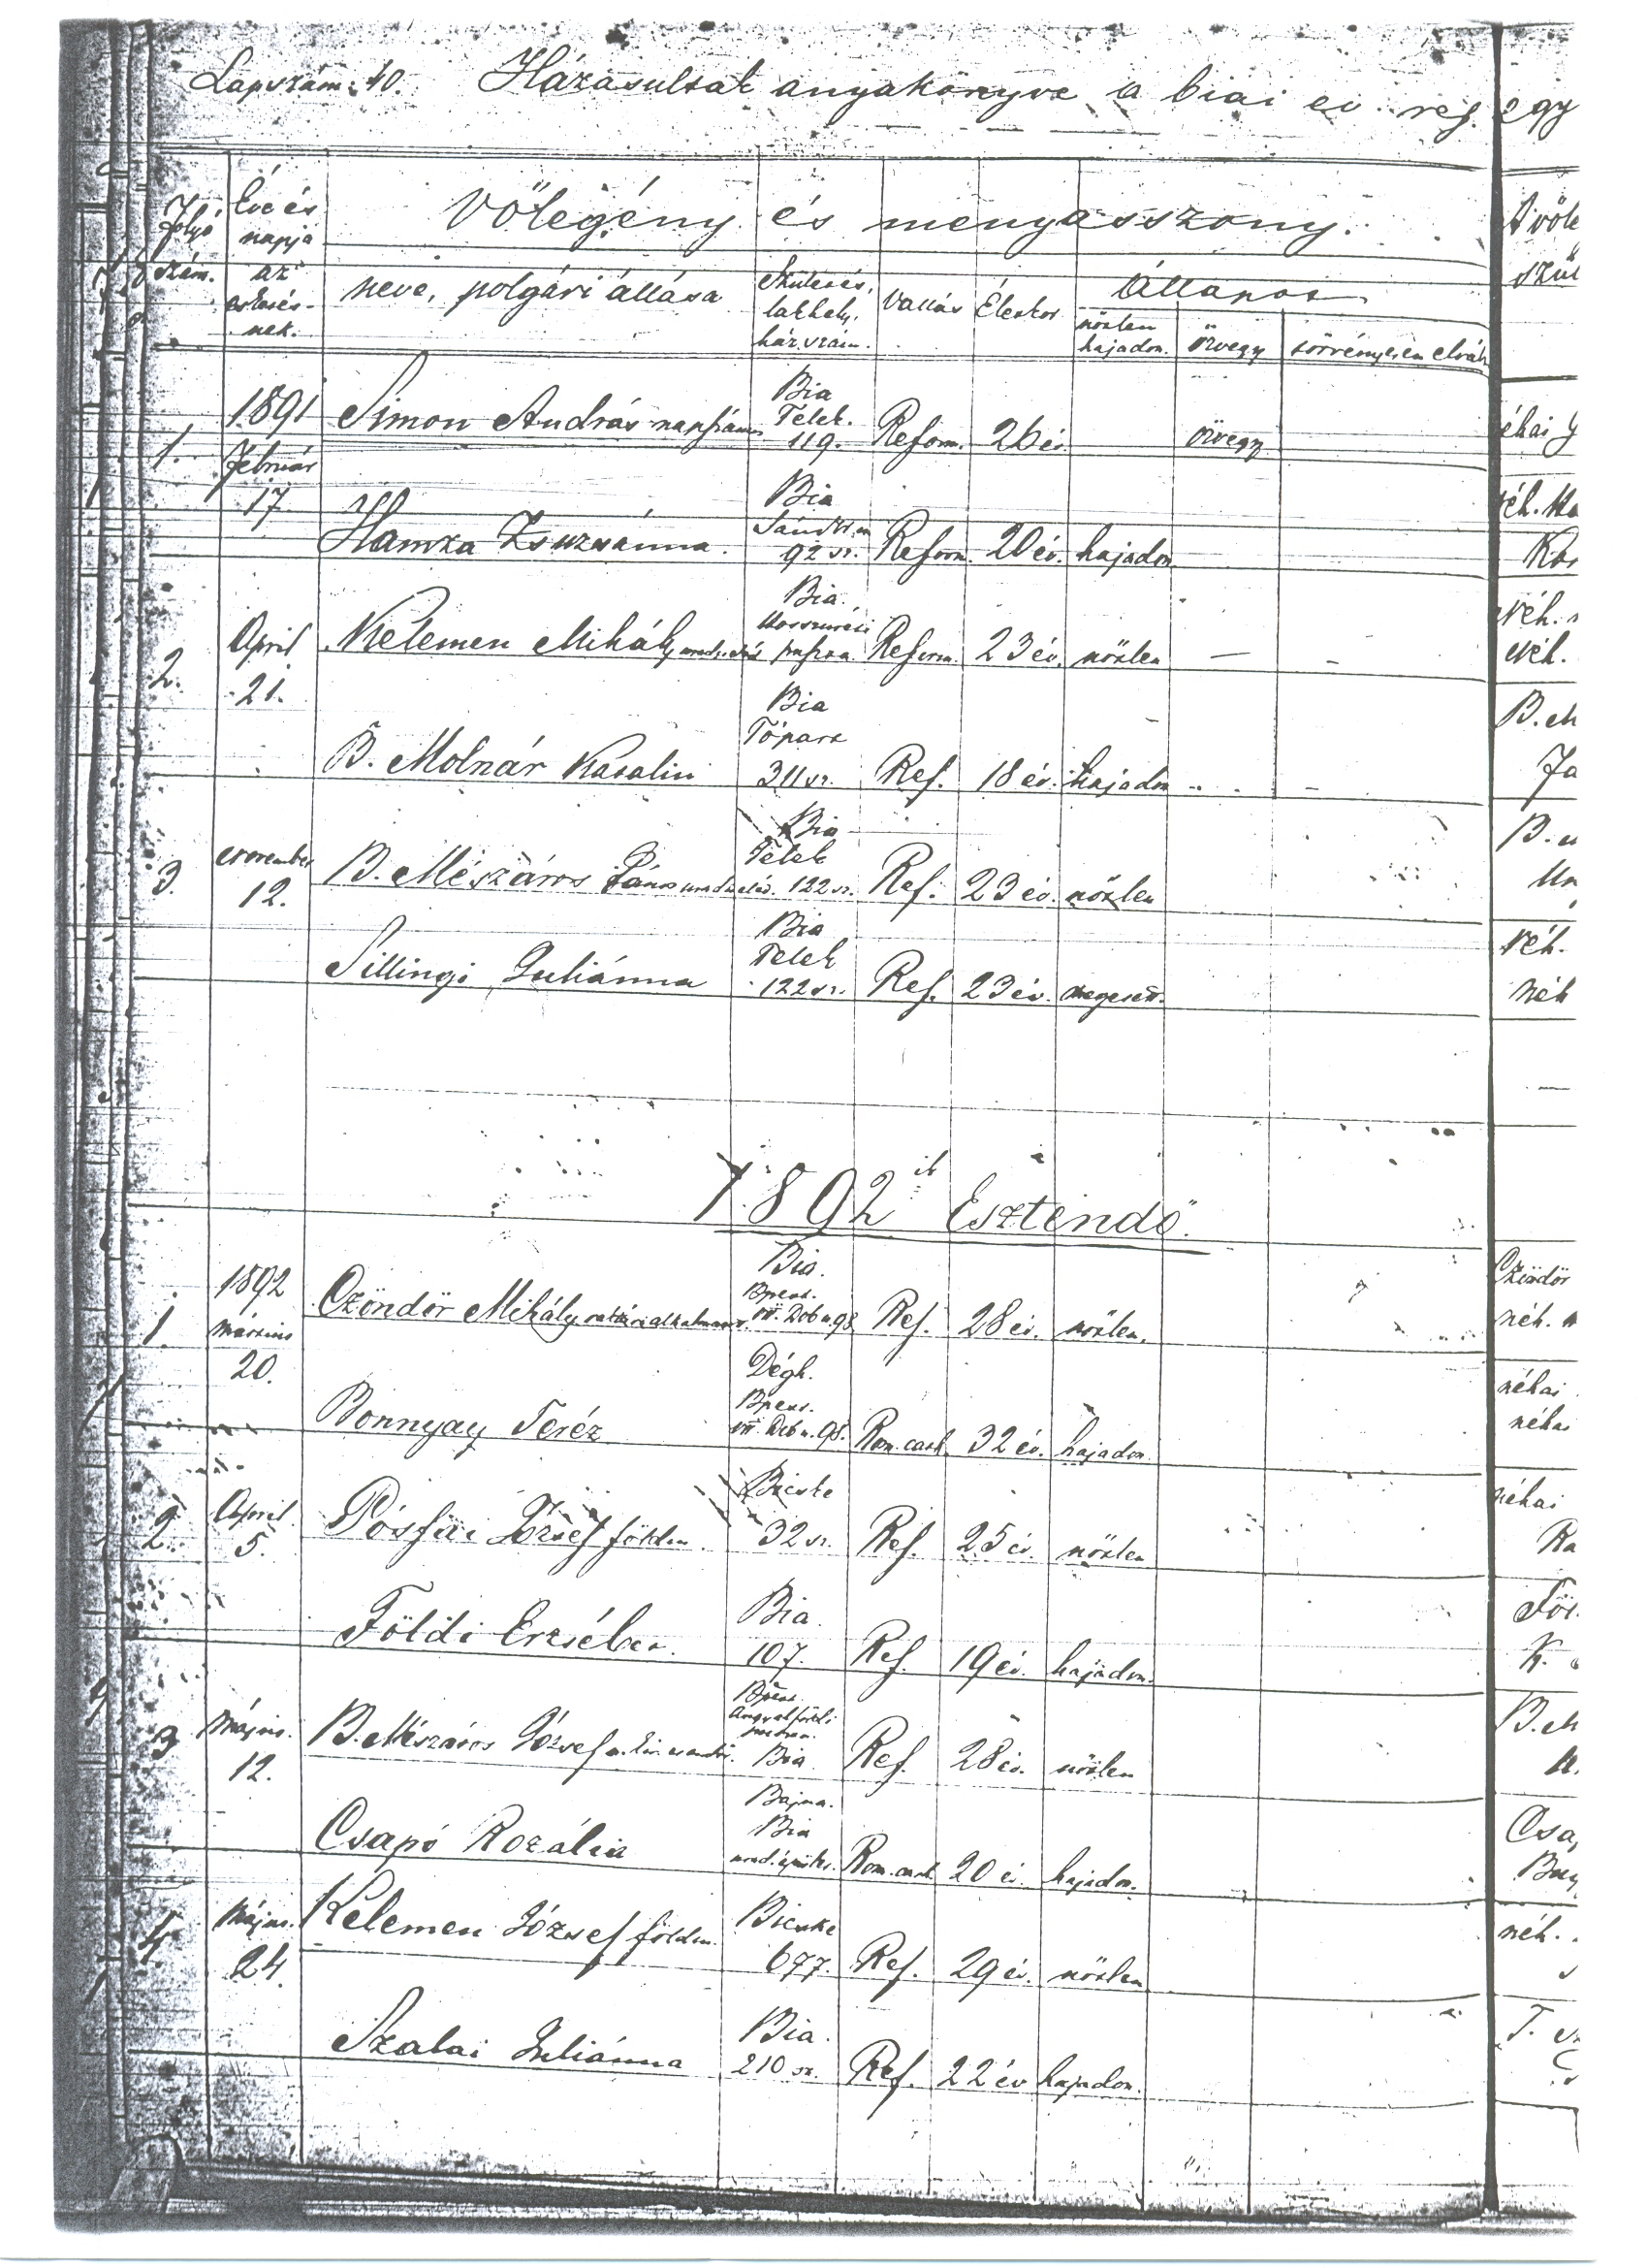 Lapszám: 40. Házasultak anyakönyve a biai ev. ref. egy
Folyó szám.
Éve és napja az esketésnek.
Vőlegény és menyasszony.
A vőle
szül
neve, polgári állása
Születés, lakhely, házszám.
vallás
Életkor
Állapot
nőtlen hajadon.
özvegy
törvényesen elvált
1. 1891 Február 17
Simon András napszámos Bia Telek. 119. Reform. 26 év özvegy
éhai
Hamza Zsuzsánna. Bia 92 sz. Reform. 20 év. hajadon
2. April 21.
Kelemen Mihály Bia. puszta Reform. 23 év. nőtlen — -
Néh.
B. Molnár Katalin Bia Tópart 311 sz. Ref. 18 év. hajadon
3. November 12.
B. Mészáros János Bia Telek 122 sz. Ref. 23 év. nőtlen
Sillingi Juliánna Bia Telek 122 sz. Ref. 23 év. megesett.
Néh.
néh
1892 ik Esztendő.
1. 1892 Márczius 20.
Czöndör Mihály Bia. Bpest. VII. Dob u. 98 Ref. 28 év. nőtlen.
Czöndör
néh.
Bonnyay Teréz Dégh. Bpest. VII. Dob u. 98. Rom. cath. 32 év. hajadon.
néhai
néhai
2. April 5.
Pósfai József földm. Bicske 32 sz. Ref. 25 év. nőtlen
néhai
Földi Erzsébet. Bia. 107. Ref. 19 év. hajadon.
3 Május. 12.
B. Mészáros József Bpest Angyalföldi Bia. Ref. 28 év. nőtlen
Csapó Rozália Bajna. Bia Rom. cath. 20 év. hajadon.
4. Május. 24.
Kelemen József földm. Bicske 677. Ref. 29 év. nőtlen
néh.
Szalai Juliánna Bia. 210 sz. Ref. 22 év hajadon.